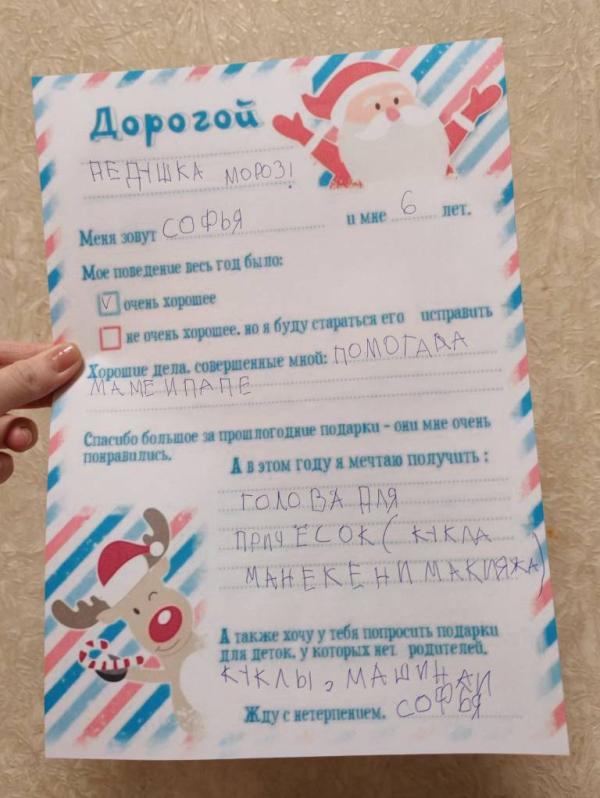 Дорогой
ДЕДУШКА МОРОЗ!
Меня зовут СОФЬЯ и мне 6 лет.
Мое поведение весь год было:
очень хорошее
не очень хорошее, но я буду стараться его исправить
Хорошие дела, совершенные мной: ПОМОГАЛА
МАМЕ И ПАПЕ
Спасибо большое за прошлогодние подарки - они мне очень
понравились.
А в этом году я мечтаю получить :
ГОЛОВА ДЛЯ
ПРИЧЁСОК ( КУКЛА
МАНЕКЕН И МАКИЯЖА)
А также хочу у тебя попросить подарки
для деток, у которых нет родителей.
КУКЛЫ, МАШИНКИ
Жду с нетерпением, СОФЬЯ